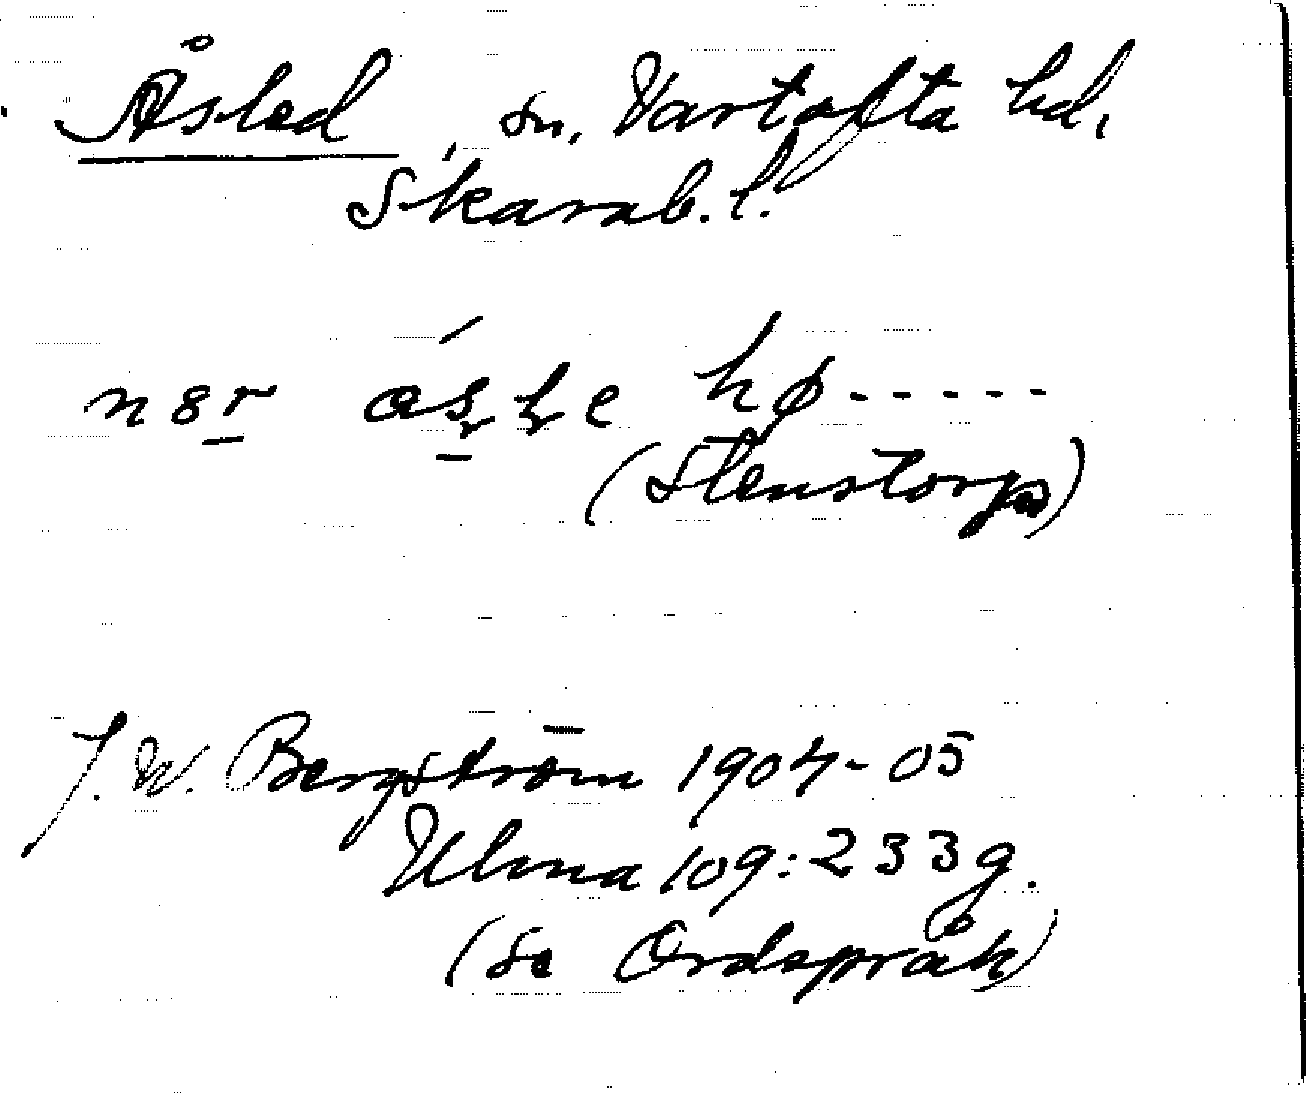 Åsled, sn, Vartofta hd,
Skarab. l.
hø-----
(Stenstorp)
J. W. Bergström 1904-05
Ulma 109:233 g.
(Se Ordspråk)